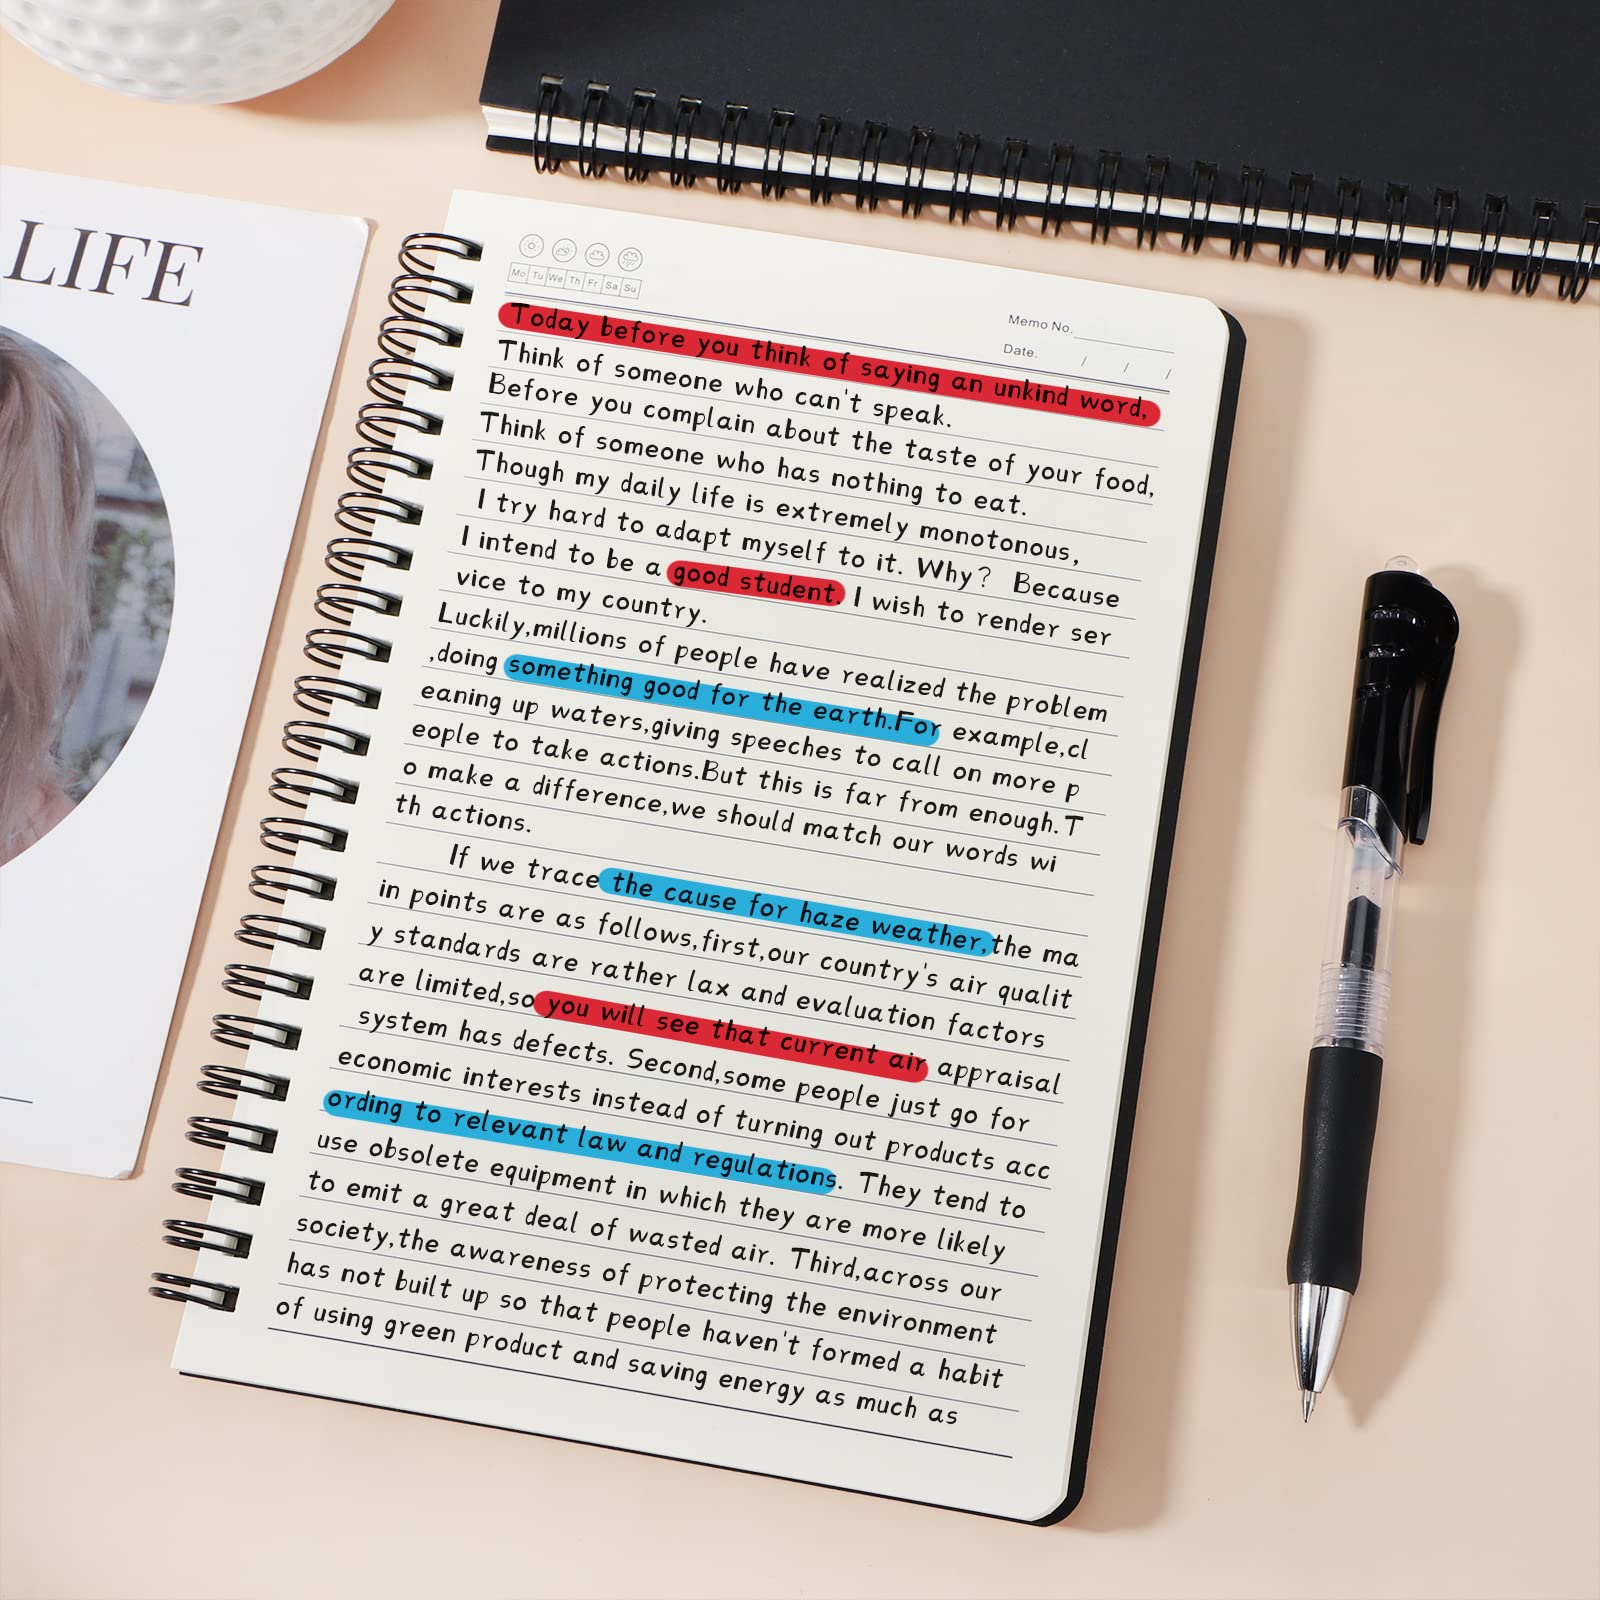 LIFE
Mo Tu We Th Fr Sa Su
Memo No.
Date. / / /
Today before you think of saying an unkind word,
Think of someone who can't speak.
Before you complain about the taste of your food,
Think of someone who has nothing to eat.
Though my daily life is extremely monotonous,
I try hard to adapt myself to it. Why? Because
I intend to be a good student. I wish to render ser
vice to my country.
Luckily,millions of people have realized the problem
,doing something good for the earth.For example,cl
eaning up waters,giving speeches to call on more p
eople to take actions.But this is far from enough.T
o make a difference,we should match our words wi
th actions.
If we trace the cause for haze weather,the ma
in points are as follows,first,our country's air qualit
y standards are rather lax and evaluation factors
are limited,so you will see that current air appraisal
system has defects. Second,some people just go for
economic interests instead of turning out products acc
ording to relevant law and regulations. They tend to
use obsolete equipment in which they are more likely
to emit a great deal of wasted air. Third,across our
society,the awareness of protecting the environment
has not built up so that people haven't formed a habit
of using green product and saving energy as much as